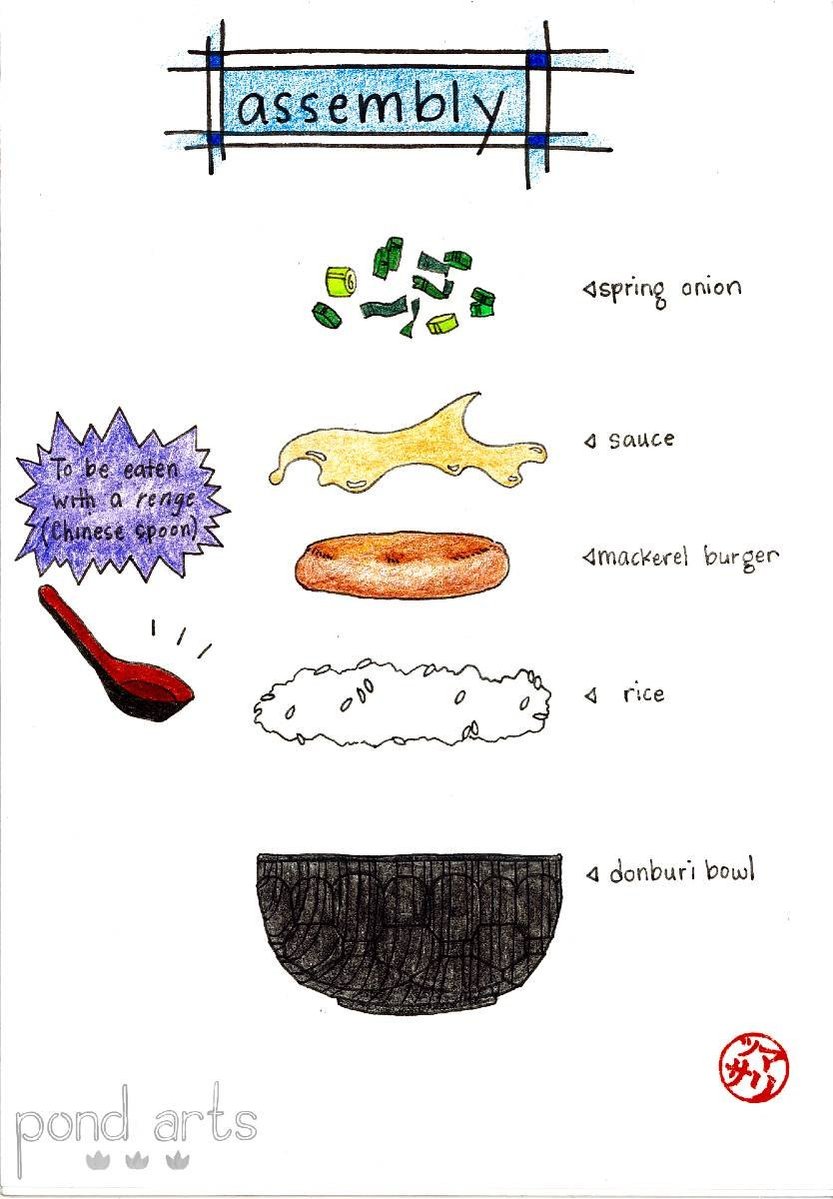 assembly
◁spring onion
◁ sauce
To be eaten
with a renge
(Chinese spoon)
◁mackerel burger
◁ rice
◁ donburi bowl
pond arts